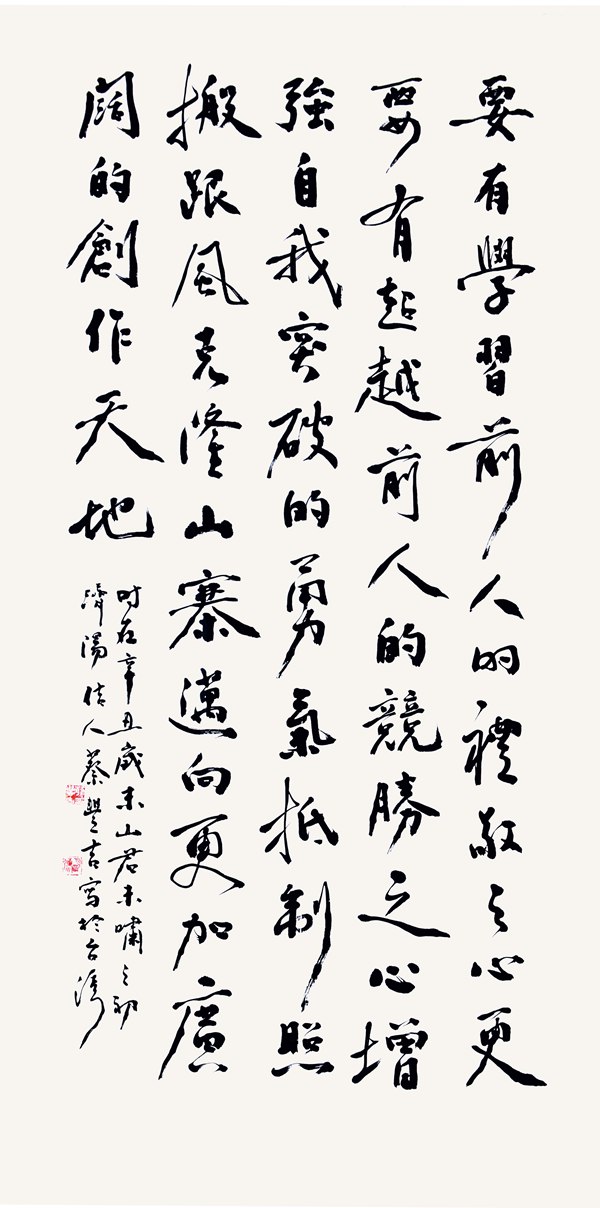 要有學習前人的禮敬之心更
要有起越前人的競勝之心增
強自我突破的勇氣抵制照
搬跟風克隆山寨邁向更加廣
闊的創作天地
時在辛丑歲末山君未嘯之初
濟陽佳人蔡豐吉寫於台灣